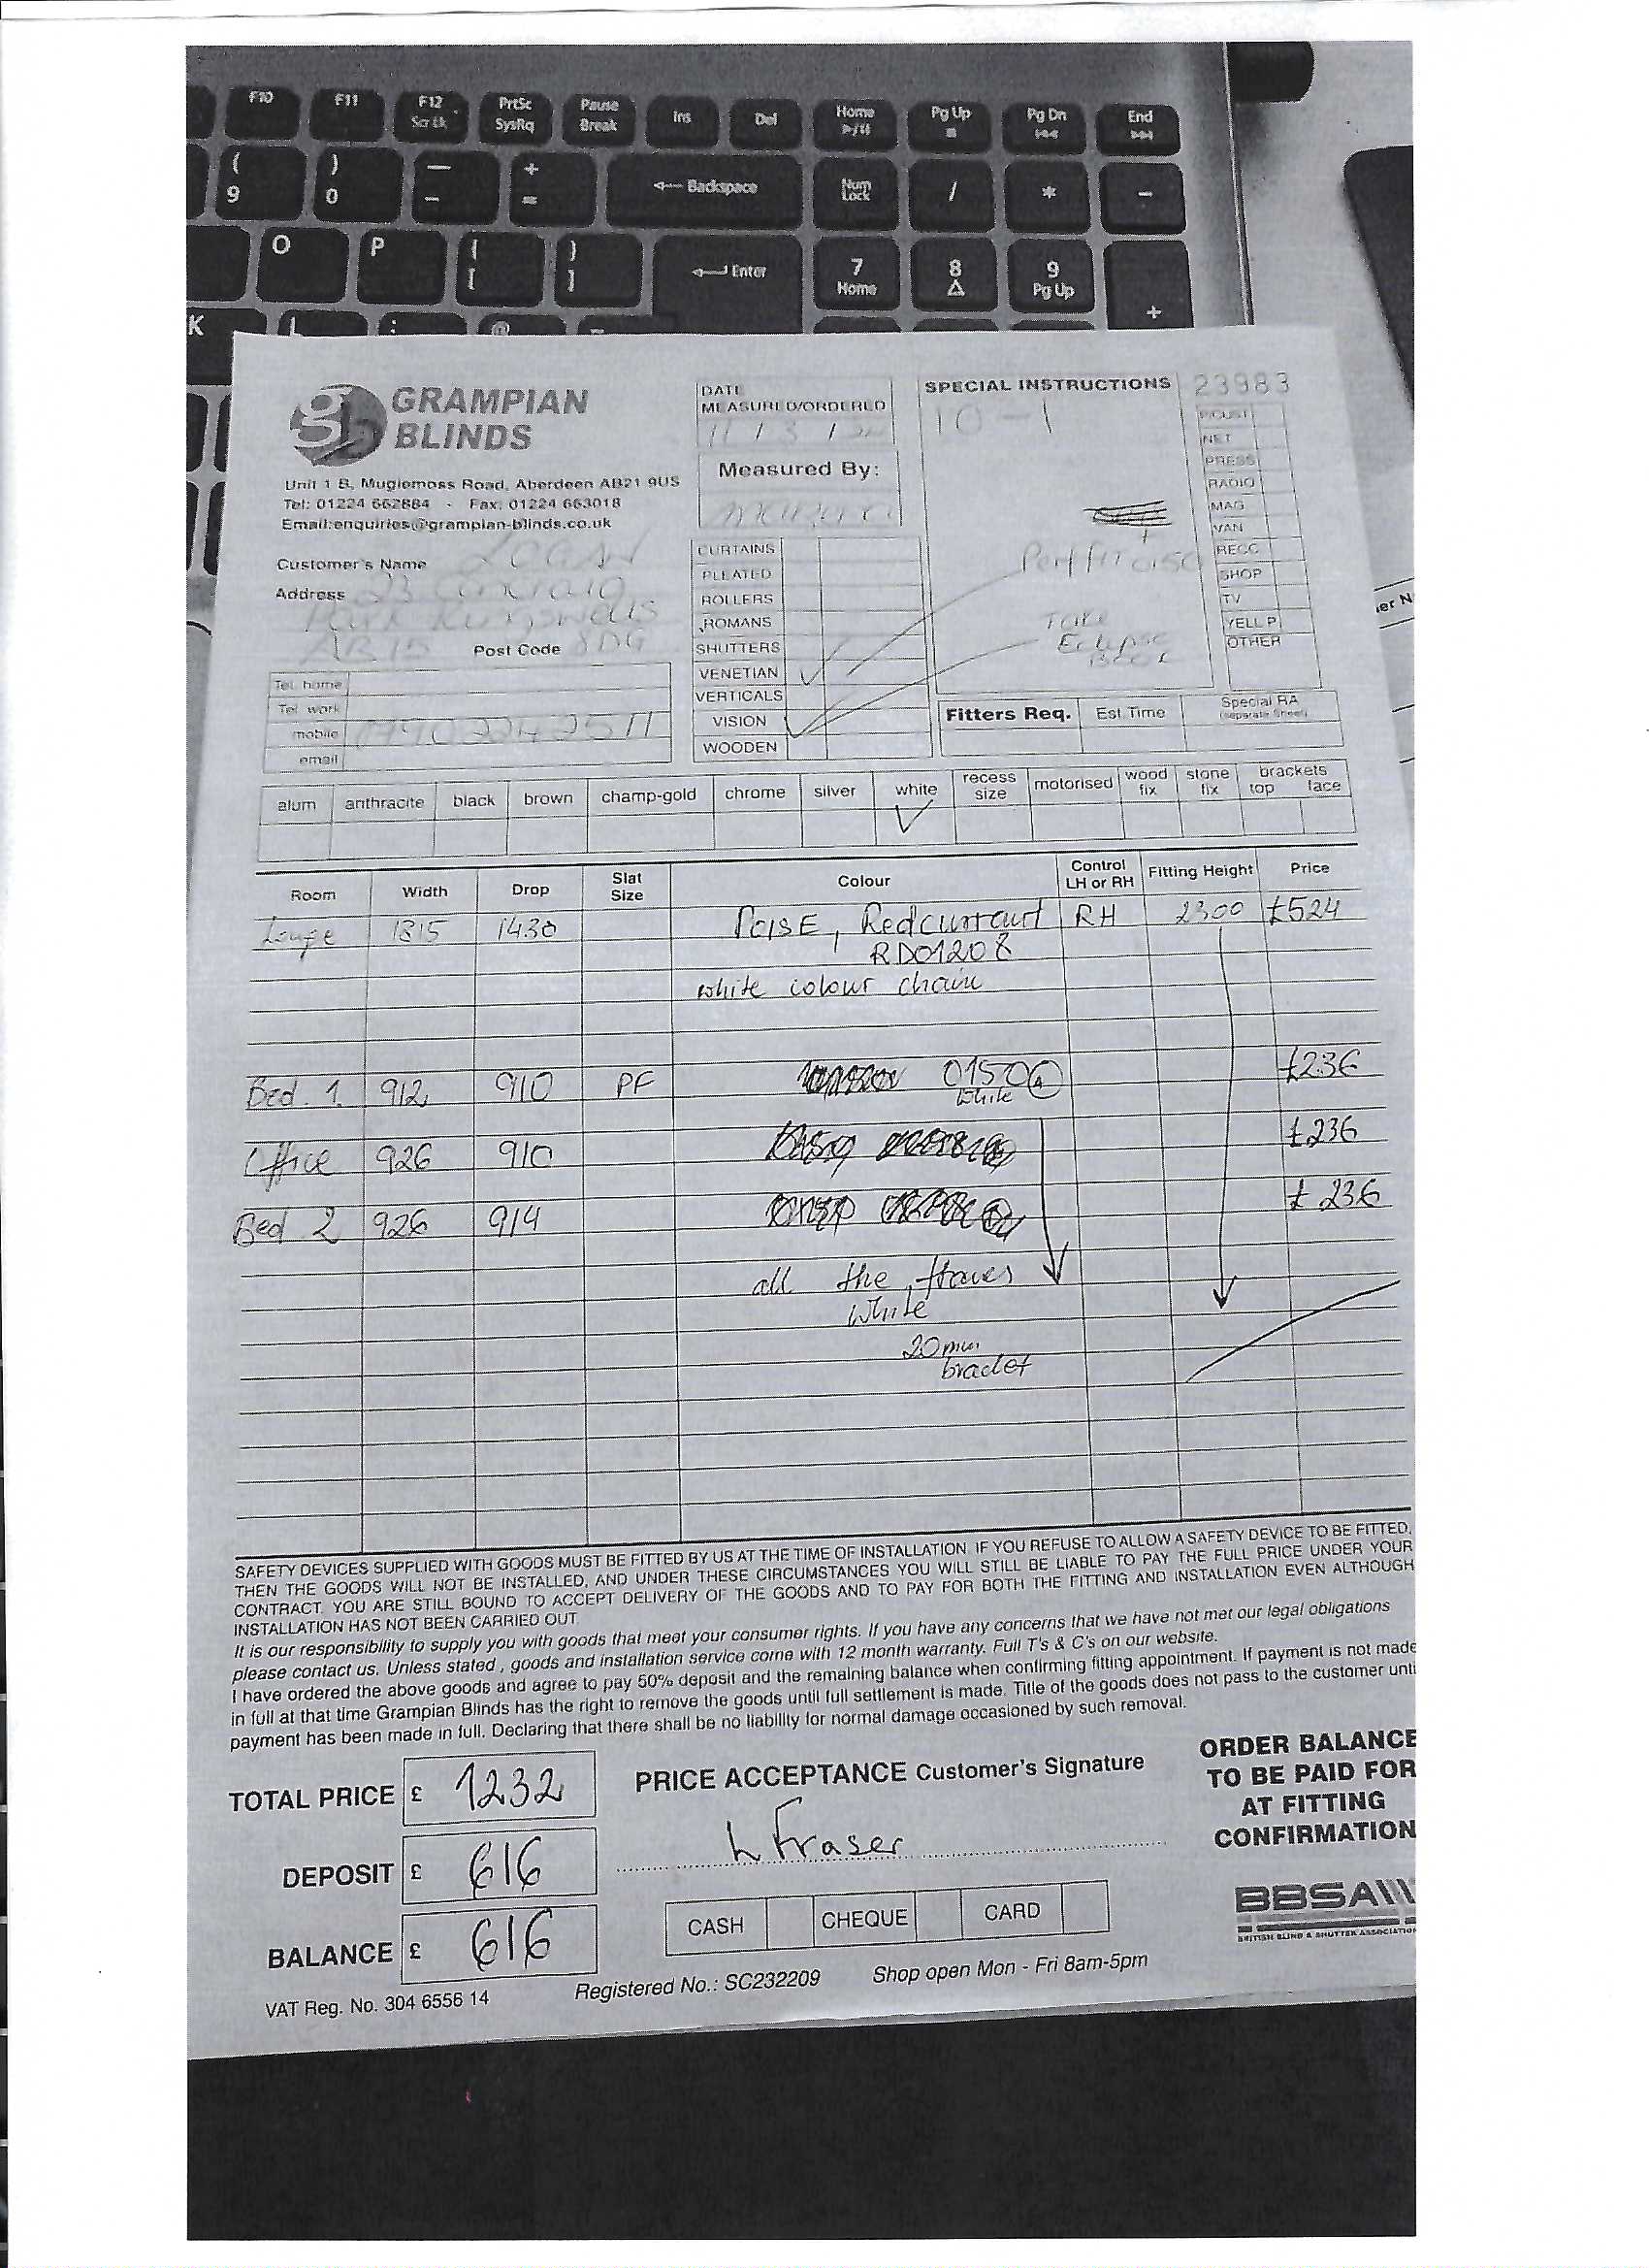 F10 F11 F12 PrtSc Pause Ins Del Home Pg Up Pg Dn End
Scr Lk SysRq Break
( ) — + ← Backspace Num / * -
9 0 - = Lock
O P { } ← Enter 7 8 9
[ ] Home Pg Up +
K L : @
GRAMPIAN
BLINDS
Unit 1 B, Mugiemoss Road, Aberdeen AB21 9US
Tel: 01224 662884 - Fax: 01224 663018
Email:enquiries@grampian-blinds.co.uk
Customer's Name
Address 23
AB15 Post Code 8DG
Tel. home
Tel. work
mobile
email
DATE
MEASURED/ORDERED
11 / 3 /
Measured By:
CURTAINS
PLEATED
ROLLERS
ROMANS
SHUTTERS
VENETIAN ✓
VERTICALS
VISION ✓
WOODEN
SPECIAL INSTRUCTIONS 23983
10 - 1
Perffit 0150
Take
Eclipse
Book
NET
PRESS
RADIO
MAG
VAN
RECC
SHOP
TV
YELL P
OTHER
Fitters Req. Est.Time Special RA
(separate Sheet)
alum anthracite black brown champ-gold chrome silver white recess size motorised wood fix stone fix brackets top face
✓
Room Width Drop Slat Size Colour Control LH or RH Fitting Height Price
Lounge 1815 1430 Poise, Redcurrant RH 2300 £524
RD01208
white colour chain
Bed. 1. 912 910 PF 0150 A £236
White
Office 926 910 £236
Bed 2 926 914 £236
all the frames
White
20mm
bracket
SAFETY DEVICES SUPPLIED WITH GOODS MUST BE FITTED BY US AT THE TIME OF INSTALLATION. IF YOU REFUSE TO ALLOW A SAFETY DEVICE TO BE FITTED,
THEN THE GOODS WILL NOT BE INSTALLED, AND UNDER THESE CIRCUMSTANCES YOU WILL STILL BE LIABLE TO PAY THE FULL PRICE UNDER YOUR
CONTRACT. YOU ARE STILL BOUND TO ACCEPT DELIVERY OF THE GOODS AND TO PAY FOR BOTH THE FITTING AND INSTALLATION EVEN ALTHOUGH
INSTALLATION HAS NOT BEEN CARRIED OUT.
It is our responsibility to supply you with goods that meet your consumer rights. If you have any concerns that we have not met our legal obligations
please contact us. Unless stated, goods and installation service come with 12 month warranty. Full T's & C's on our website.
I have ordered the above goods and agree to pay 50% deposit and the remaining balance when confirming fitting appointment. If payment is not made
in full at that time Grampian Blinds has the right to remove the goods until full settlement is made. Title of the goods does not pass to the customer unti
payment has been made in full. Declaring that there shall be no liability for normal damage occasioned by such removal.
TOTAL PRICE £ 1232
DEPOSIT £ 616
BALANCE £ 616
PRICE ACCEPTANCE Customer's Signature
L Fraser
CASH CHEQUE CARD
ORDER BALANCE
TO BE PAID FOR
AT FITTING
CONFIRMATION
BBSA
BRITISH BLIND & SHUTTER ASSOCIATION
VAT Reg. No. 304 6556 14 Registered No.: SC232209 Shop open Mon - Fri 8am-5pm